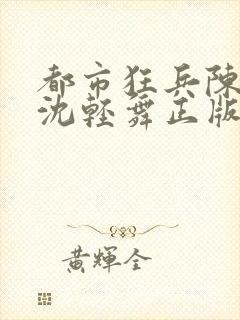 都市狂兵陳
沈輕舞正版
黃輝全